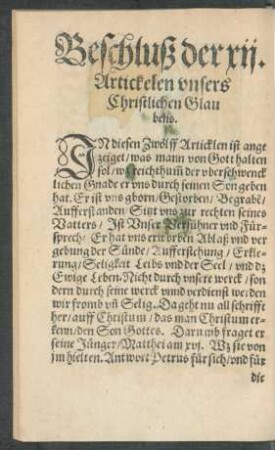 Beschluß der xij.
Artickelen vnsers
Christlichen Glau
bens.
IN diesen Zwölff Articklen ist ange
zeiget / was mann von Gott halten
sol / was reichthum der vberschwenck
lichen Gnade er vns durch seinen Son geben
hat. Er ist vns gborn / Gestorben / Begrabt /
Aufferstanden Sitzt vns zur rechten seines
Vatters / Ist Vnser Versühner vnd Für-
sprech / Er hat vns erworben Ablaß vnd ver
gebung der Sünde / Aufferstehung / Erkle-
rung / Seligkeit Leibs vnd der Seel / vnd dz
Ewige Leben. Nicht durch vnsere werck / son
dern durch seine werck vnnd verdienst werden
wir fromb vñ Selig. Da geht nu all schrifft
her / auff Christum / das man Christum er-
kenn / den Son Gottes. Darumb fraget er
seine Jünger / Matthei am xvj. Wz sie von
jm hielten. Antwort Petrus für sich / vnd für
die